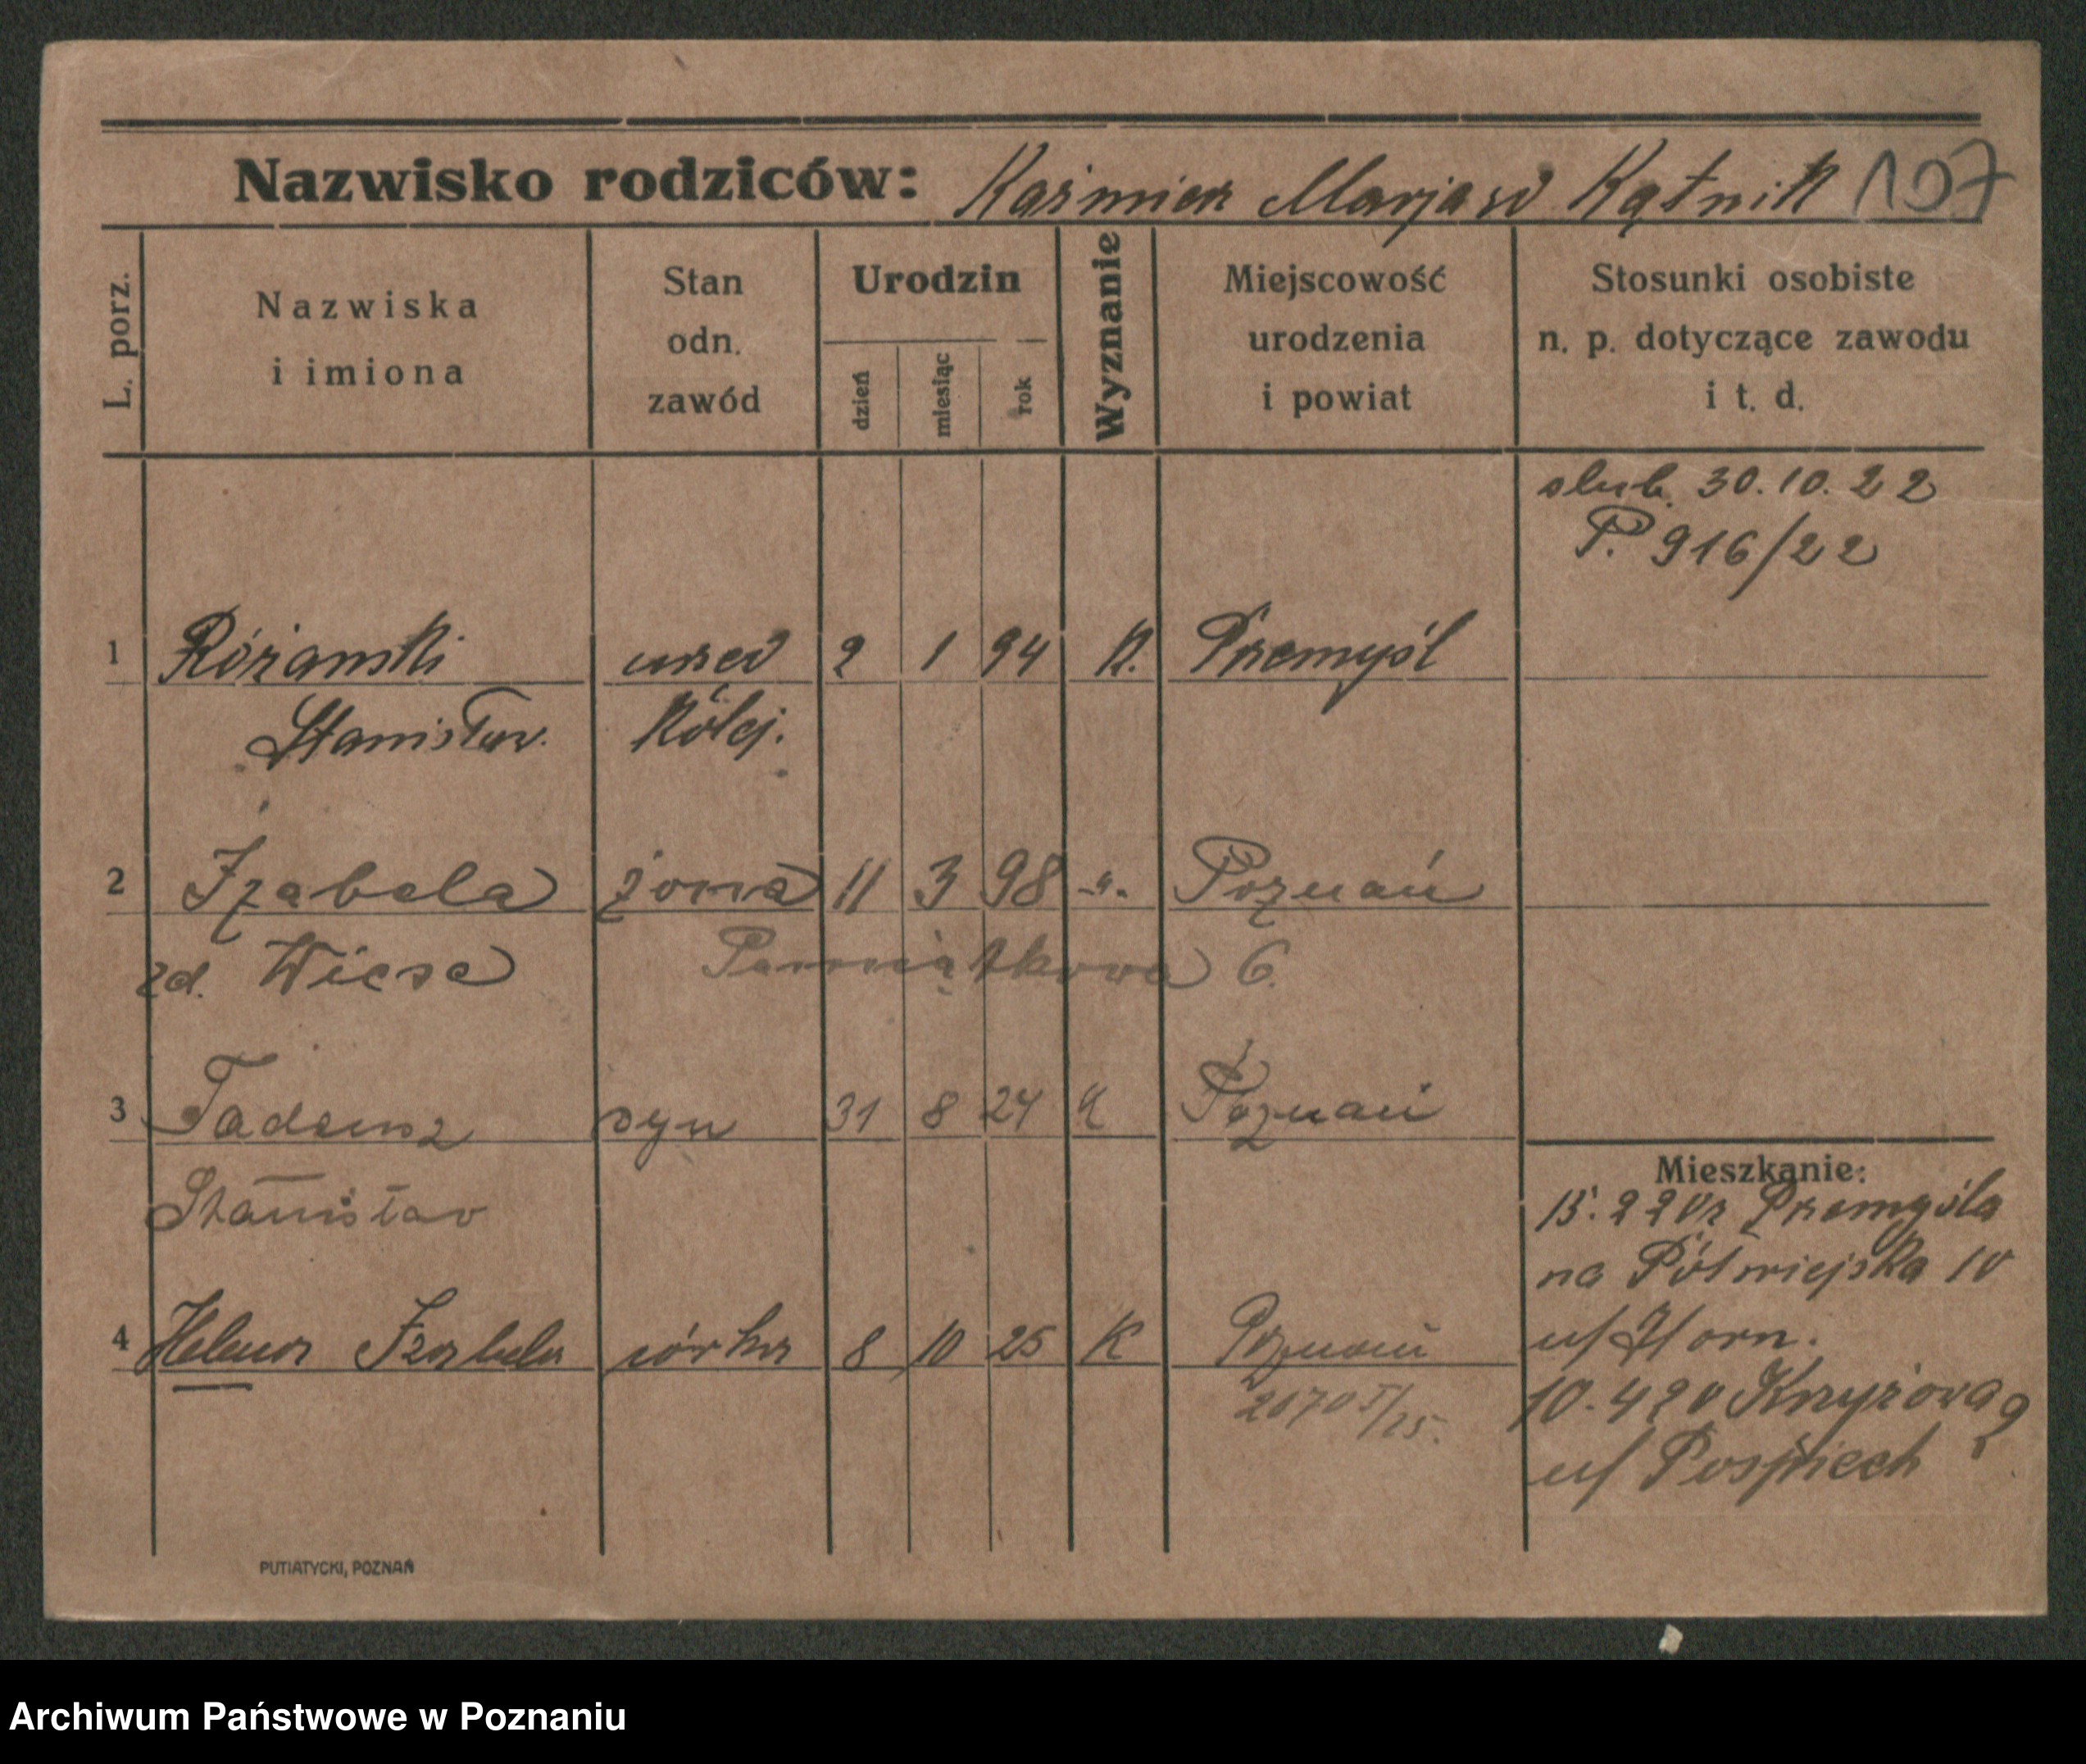 Nazwisko rodziców: Kaźmierz Marja w Kątnik 107
L. porz.
Nazwiska
i imiona
Stan
odn.
zawód
Urodzin
dzień
miesiąc
rok
Wyznanie
Miejscowość
urodzenia
i powiat
Stosunki osobiste
n. p. dotyczące zawodu
i t. d.
slub. 30.10.22
P. 916/22
1 Różanski urzed 2 1 94 K. Przemyśl
Stanisław. Kolej.
2 Izabela żona 11 3 98 -"- Poznań
zd. Wiese Pamiątkowa 6.
3 Tadeusz syn 31 8 24 K Poznań
Stanisław
Mieszkanie:
15.2 22 Przemyśla
na Półwiejska 10
u/ Horn.
4 Helena Izabela córka 8 10 25 K Poznań
2070 I/25.
10.4 Krzyżowa 2
u/ Pospiech
PUTIATYCKI, POZNAŃ
Archiwum Państwowe w Poznaniu